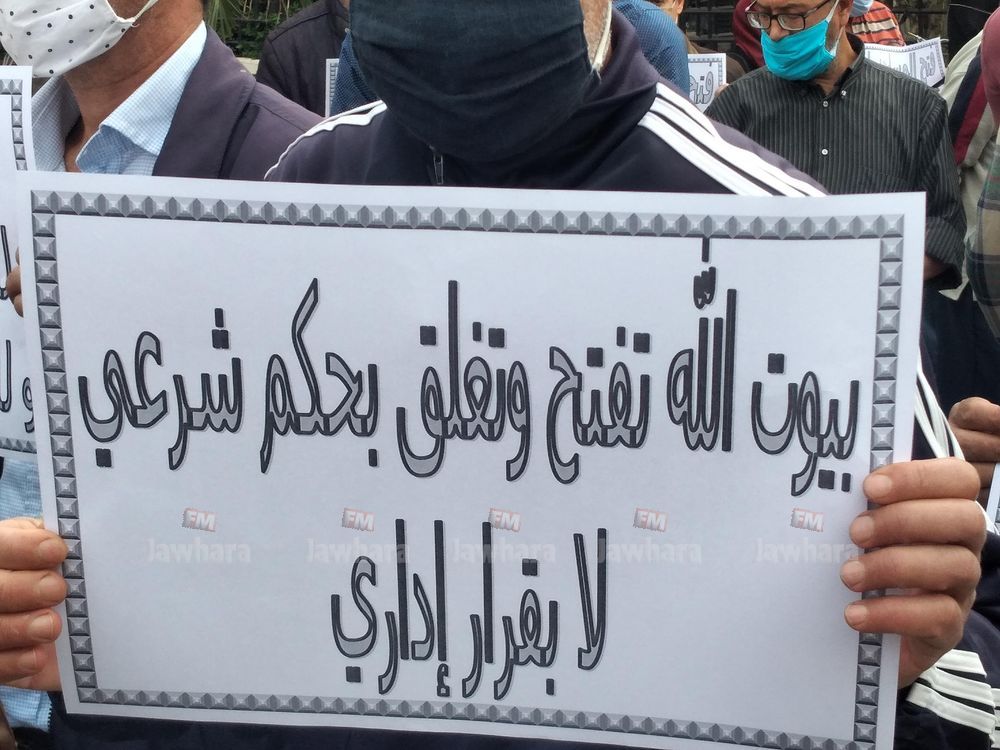 بيوت الله تفتح وتغلق بحكم شرعي
لا بقرار إداري
FM FM FM FM FM
Jawhara Jawhara Jawhara Jawhara Jawhara